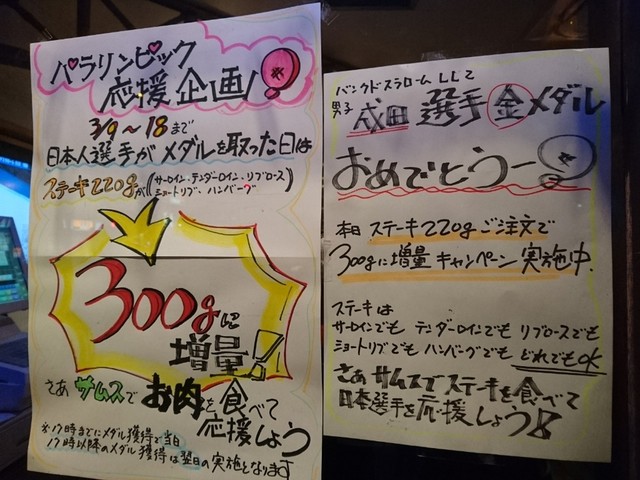 パラリンピック
応援企画!
3/9〜18まで
日本人選手がメダルを取った日は
ステーキ220gが(サーロイン・テンダーロイン・リブロース
ショートリブ、ハンバーグ)
300gに
増量!
さあサムスでお肉を食べて
応援しよう
※17時までにメダル獲得で当日
17時以降のメダル獲得は翌日の実施となります
バンクドスラロームLL2
男子 成田選手 金メダル
おめでとうー
本日ステーキ220gご注文で
300gに増量キャンペーン実施中.
ステーキは
サーロインでも テンダーロインでも リブロースでも
ショートリブでも ハンバーグでも どれでもOK
さぁサムスでステーキを食べて
日本選手を応援しよう